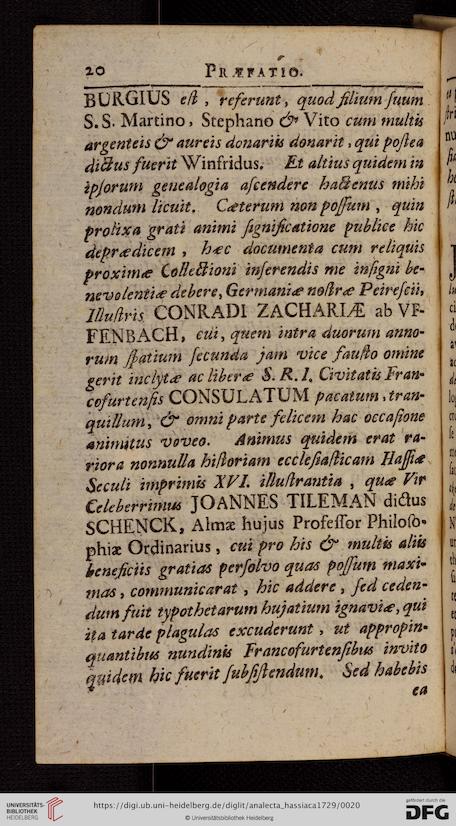 20 PRÆFATIO.
BURGIUS eſt, referunt, quod filium ſuum
S. S. Martino, Stephano & Vito cum multis
argenteis & aureis donariis donarit, qui poſtea
dictus fuerit Winfridus. Et altius quidem in
ipſorum genealogia aſcendere hactenus mihi
nondum licuit. Cæterum non poſſum, quin
prolixa grati animi ſignificatione publice hic
deprædicem, hæc documenta cum reliquis
proximæ Collectioni inſerendis me inſigni be-
nevolentiæ debere, Germaniæ noſtræ Peireſcii,
Illuſtris CONRADI ZACHARIÆ ab VF-
FENBACH, cui, quem intra duorum anno-
rum ſpatium ſecunda jam vice fauſto omine
gerit inclytæ ac liberæ S. R. I. Civitatis Fran-
cofurtenſis CONSULATUM pacatum, tran-
quillum, & omni parte felicem hac occaſione
animitus voveo. Animus quidem erat ra-
riora nonnulla hiſtoriam eccleſiaſticam Haſſiæ
Seculi imprimis XVI. illuſtrantia, quæ Vir
Celeberrimus JOANNES TILEMAN dictus
SCHENCK, Almæ hujus Profeſſor Philoſo-
phiæ Ordinarius, cui pro his & multis aliis
beneficiis gratias perſolvo quas poſſum maxi-
mas, communicarat, hic addere, ſed ceden-
dum fuit typothetarum hujatium ignaviæ, qui
ita tarde plagulas excuderunt, ut appropin-
quantibus nundinis Francofurtenſibus invito
quidem hic fuerit ſubſiſtendum. Sed habebis
ea
UNIVERSITÄTS-
BIBLIOTHEK
HEIDELBERG
https://digi.ub.uni-heidelberg.de/diglit/analecta_hassiaca1729/0020
© Universitätsbibliothek Heidelberg
gefördert durch die
DFG